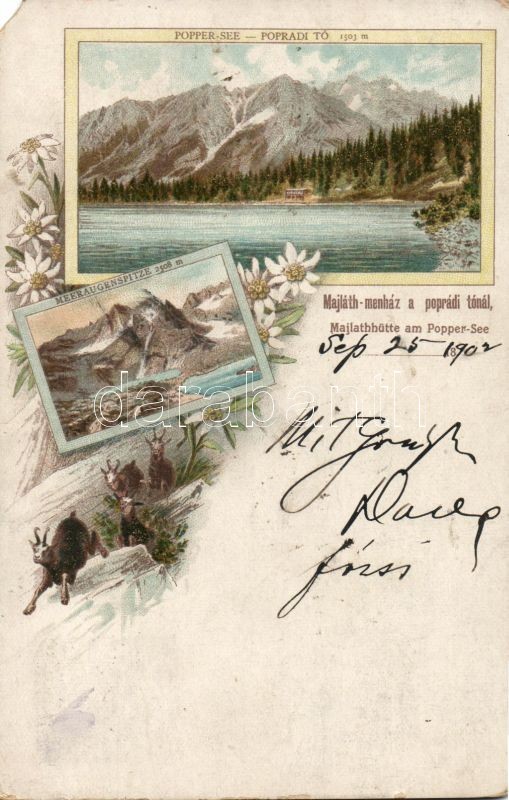 POPPER-SEE — POPRADI TÓ 1503 m
MEERAUGENSPITZE 2508 m
Majláth-menház a poprádi tónál,
Majlathhütte am Popper-See
Sep 25 1902
darabanth
Mit